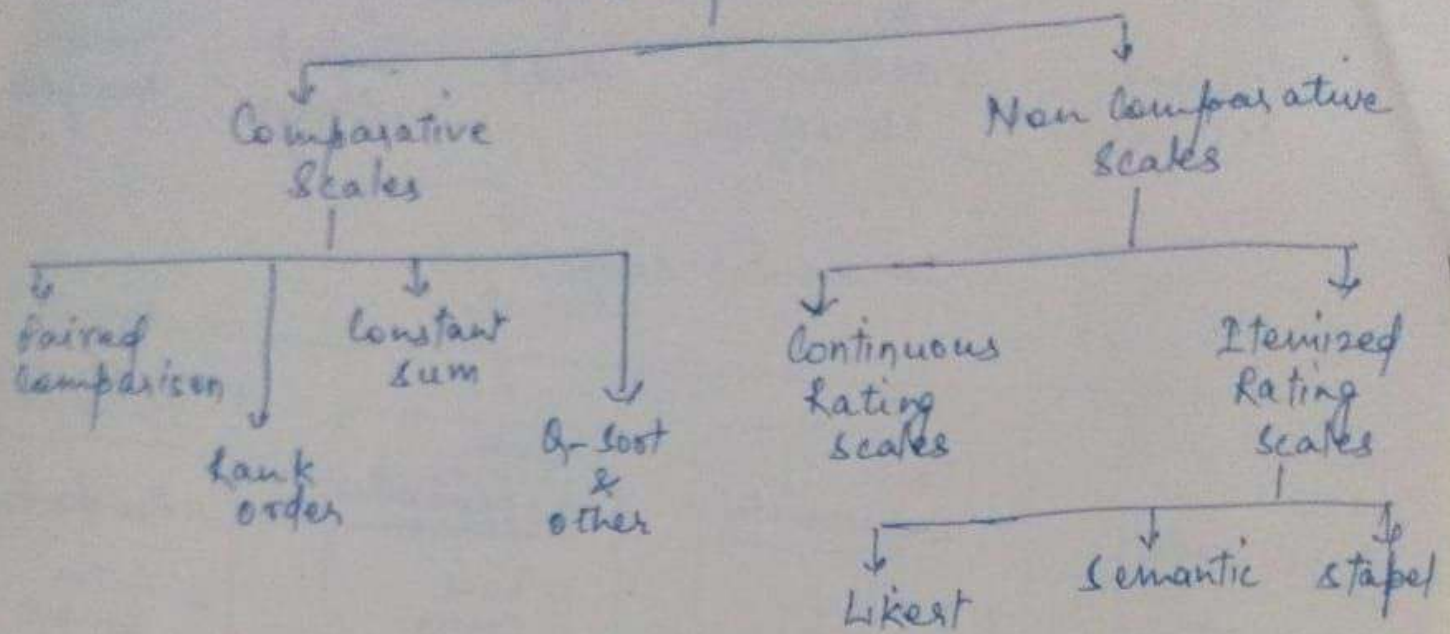 Comparative
Scales
Non Comparative
Scales
Paired
Comparison
Rank
order
Constant
sum
Q-Sort
&
other
Continuous
Rating
scales
Itemized
Rating
scales
Likert
Semantic
stapel